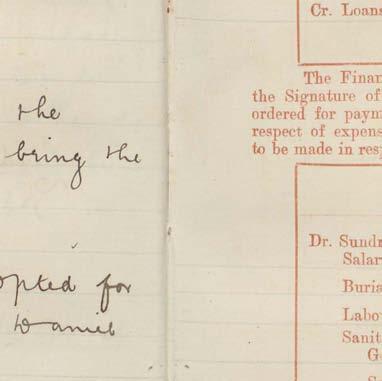 the
bring the
opted for
Daniel
Cr. Loans
The Finan
the Signature of
ordered for paym
respect of expens
to be made in res
Dr. Sundr
Salar
Buria
Labo
Sanit
G